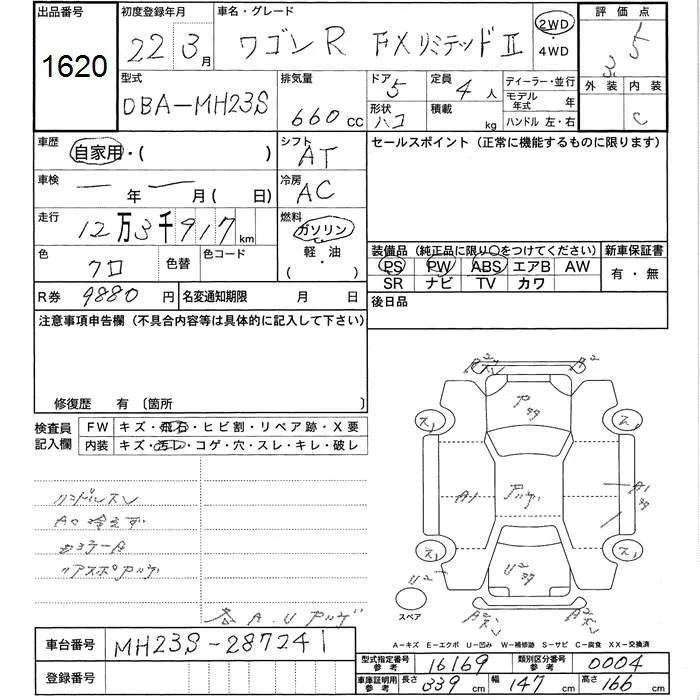 出品番号 初度登録年月 車名・グレード 評価点
1620 22 3月 ワゴンR FXリミテッドⅡ 2WD・4WD 3.5
型式 排気量 ドア 定員 ディーラー・並行 外装 内装
DBA-MH23S 660cc 5 4人 モデル年式 年
形状 ハコ 積載 kg ハンドル 左・右 C
車歴 自家用・( ) シフト AT セールスポイント (正常に機能するものに限ります)
車検 ー年ー月(日) 冷房 AC
走行 12万3千917km 燃料 ガソリン・軽・油・( )
色 クロ 色替 色コード
装備品 (純正品に限り○をつけてください) 新車保証書
PS PW ABS エアB AW 有・無
SR ナビ TV カワ
R券 9880円 名変通知期限 月 日 後日品
注意事項申告欄 (不具合内容等は具体的に記入して下さい)
修復歴 有 〔箇所 〕
検査員記入欄 FW キズ・飛石・ヒビ割・リペア跡・X要
内装 キズ・汚レ・コゲ・穴・スレ・キレ・破レ
ハンドルスレ
AC冷えず
リアスポアルゲ
各A.Uアルゲ
A2 ア タタ
A1 アルゲ A1
U2
スペア
A-キズ E-エクボ U-凹み W-補修跡 S-サビ C-腐食 XX-交換済
車台番号 MH23S-287241
型式指定番号 参考 16169 類別区分番号 参考 0004
登録番号 車庫証明用 参考 長さ 339cm 幅 147cm 高さ 166cm